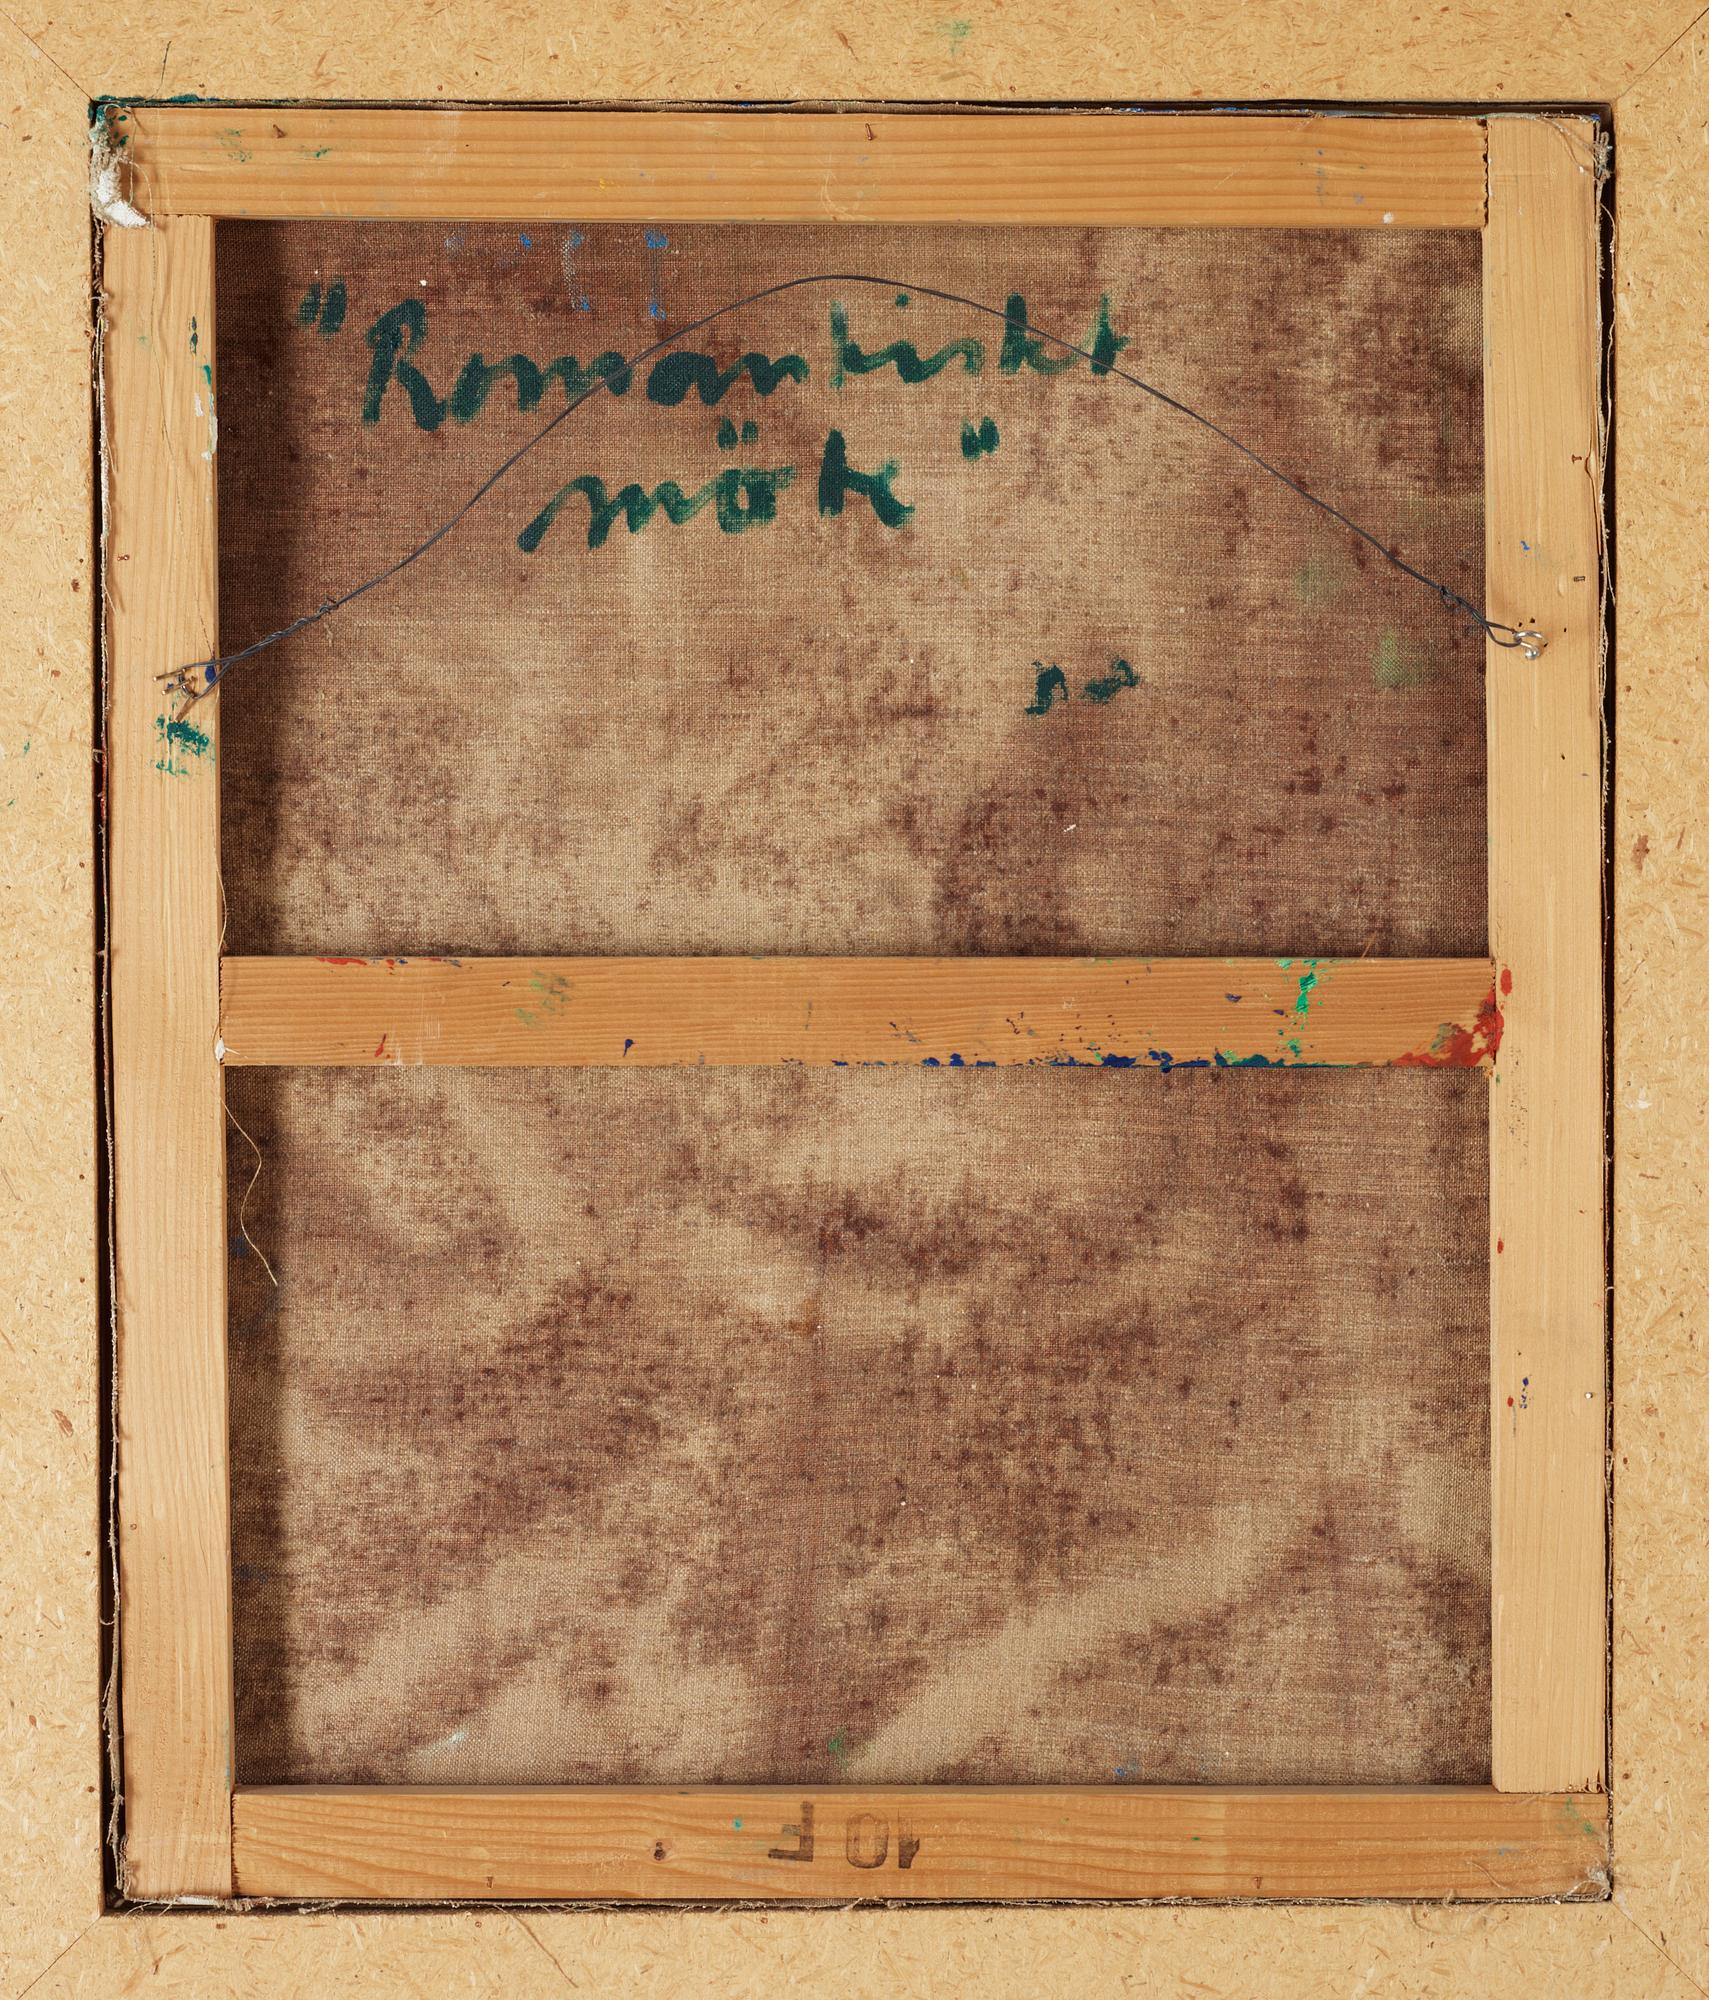 "Romantiskt
möte"
10 F